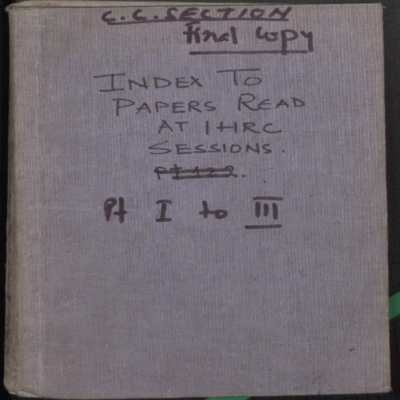 C.C. SECTION
final copy
INDEX TO
PAPERS READ
AT IHRC
SESSIONS.
Pt I to III